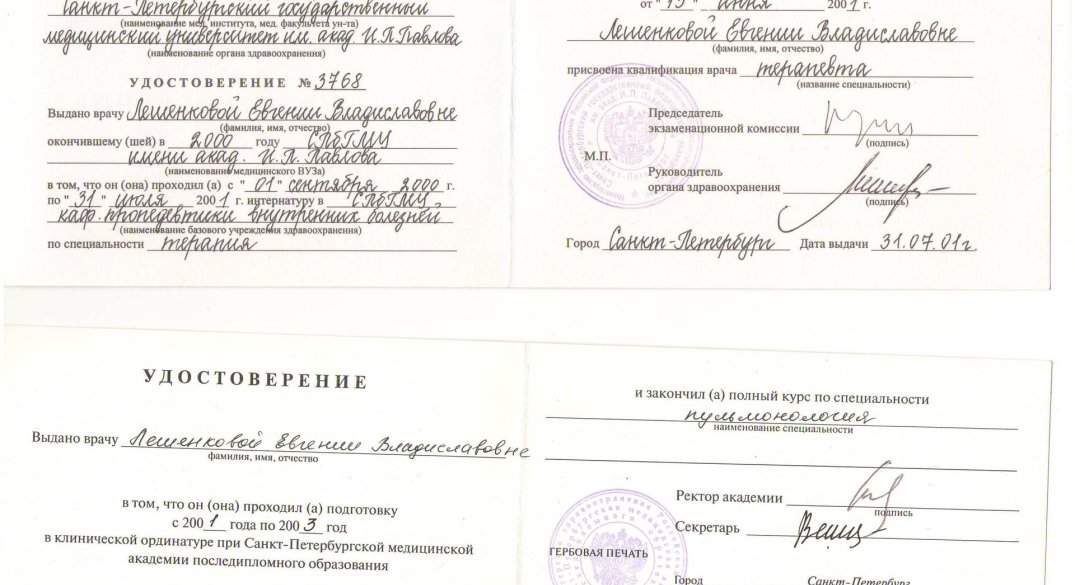 Санкт-Петербургский государственный
(наименование мед. института, мед. факультета ун-та)
медицинский университет им. акад. И.П.Павлова
(наименование органа здравоохранения)
УДОСТОВЕРЕНИЕ № 3768
Выдано врачу Лешенковой Евгении Владиславовне
(фамилия, имя, отчество)
окончившему (шей) в 2000 году СПбГМУ
имени акад. И.П. Павлова
(наименование медицинского ВУЗа)
в том, что он (она) проходил (а) с "01" сентября 2000 г.
по "31" июля 2001 г. интернатуру в СПбГМУ
каф. пропедевтики внутренних болезней
(наименование базового учреждения здравоохранения)
по специальности терапия
от "15" июня 2001 г.
Лешенковой Евгении Владиславовне
(фамилия, имя, отчество)
присвоена квалификация врача терапевта
(название специальности)
Председатель
экзаменационной комиссии
(подпись)
М.П.
Руководитель
органа здравоохранения
(подпись)
Город Санкт-Петербург Дата выдачи 31.07.01г.
УДОСТОВЕРЕНИЕ
Выдано врачу Лешенковой Евгении Владиславовне
фамилия, имя, отчество
в том, что он (она) проходил (а) подготовку
с 2001 года по 2003 год
в клинической ординатуре при Санкт-Петербургской медицинской
академии последипломного образования
и закончил (а) полный курс по специальности
пульмонология
наименование специальности
Ректор академии
подпись
Секретарь
ГЕРБОВАЯ ПЕЧАТЬ
Город Санкт-Петербург